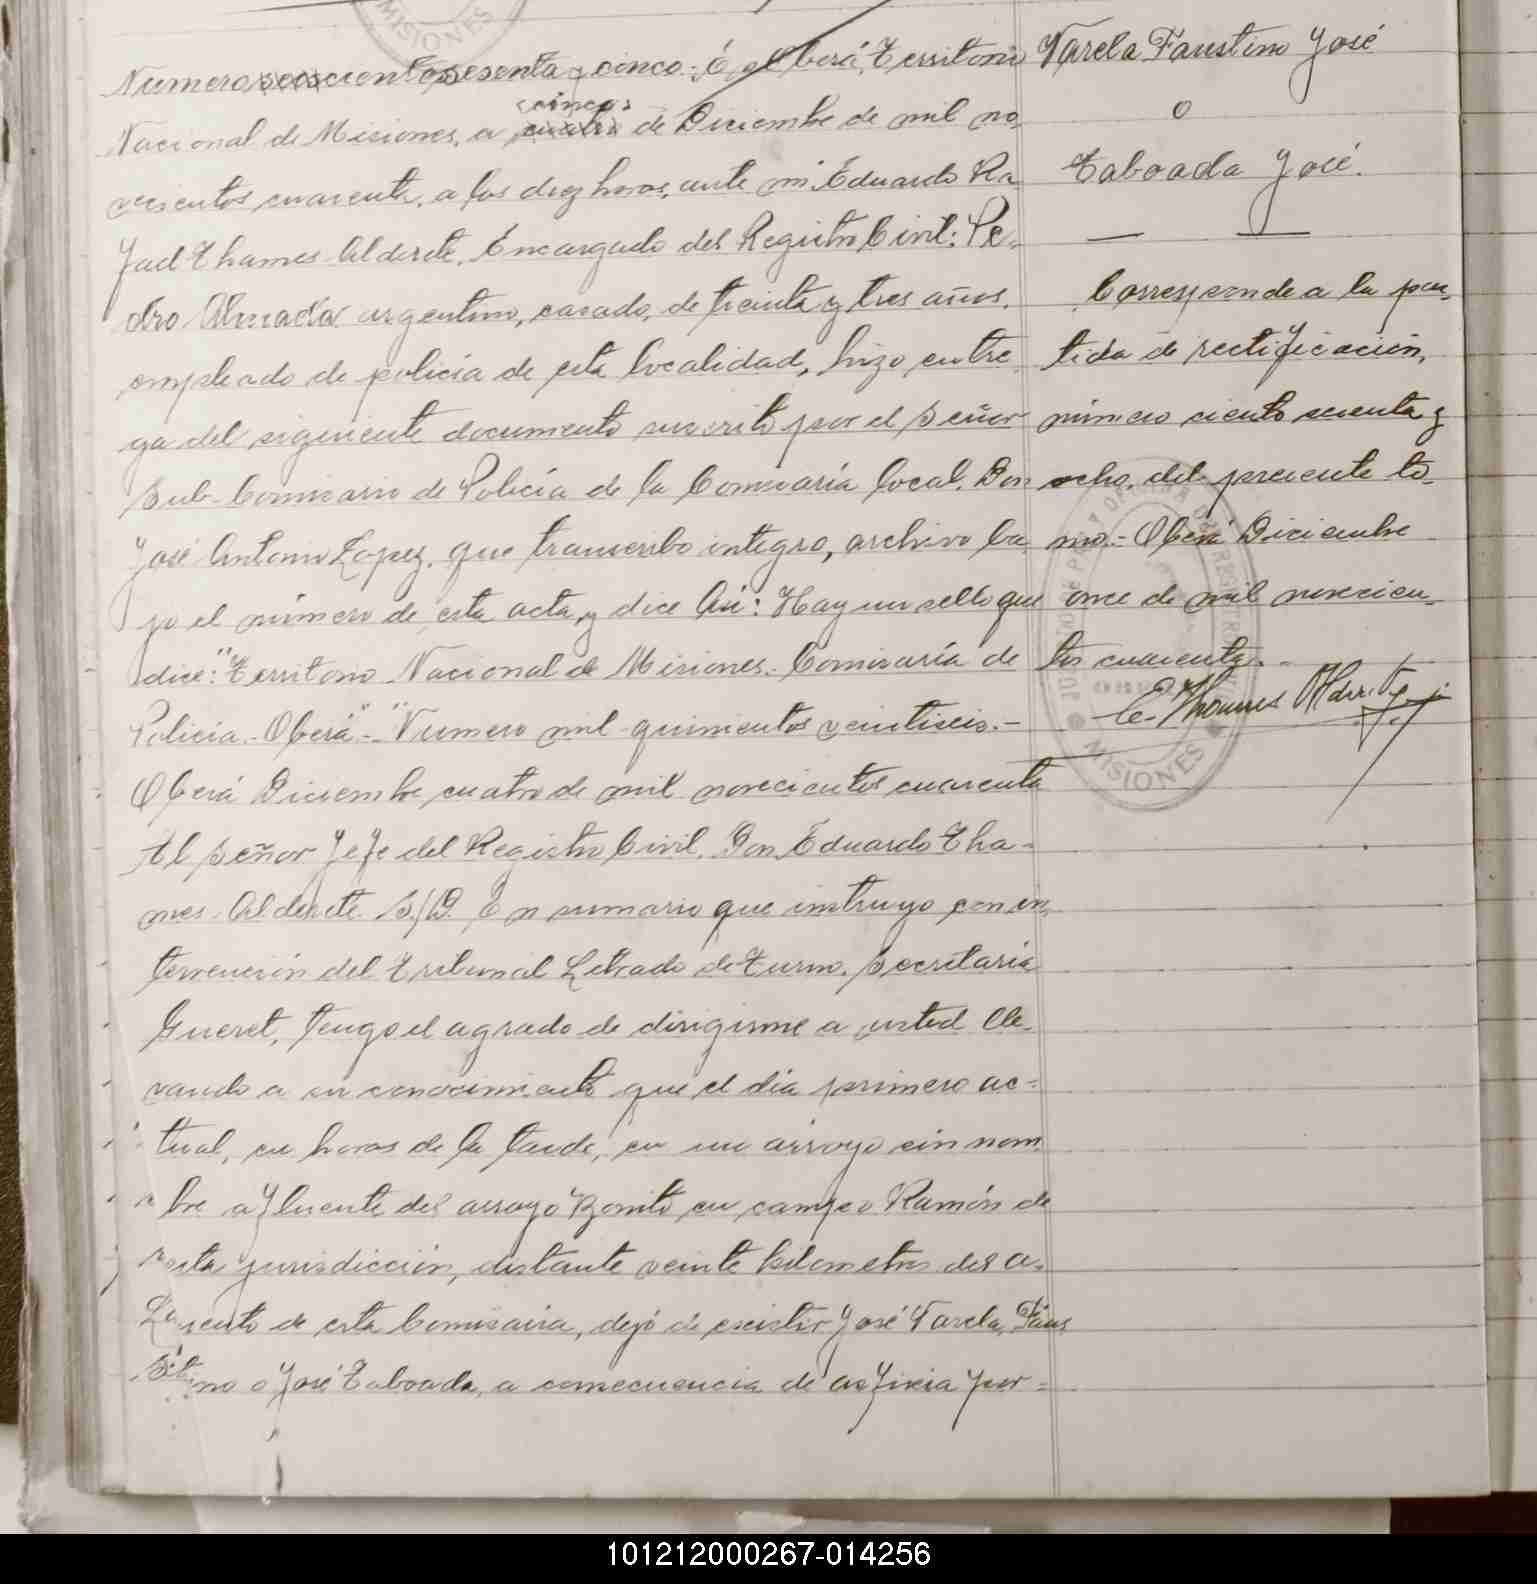 MISIONES
Numero sesenta y cinco.- En Oberá, Territorio
cinco
Nacional de Misiones, a cuatro de Diciembre de mil no-
vecientos cuarenta, a las diez horas, ante mi Eduardo Ra
fael Thames Alderete, Encargado del Registro Civil: Pe-
dro Almada argentino, casado, de treinta y tres años,
empleado de policía de esta localidad, hizo entre
ga del siguiente documento suscrito por el Señor
Sub-Comisario de Policía de la Comisaría local, Don
José Antonio Lopez, que transcribo integro, archivo ba
jo el número de esta acta, y dice Así: Hay un sello que
dice: "Territorio Nacional de Misiones.- Comisaría de
Policia.- Oberá".- "Numero mil quinientos veintiseis.-
Oberá Diciembre cuatro de mil novecientos cuarenta
Al Señor Jefe del Registro Civil, Don Eduardo Tha-
mes Alderete. S/D. En sumario que instruyo con in-
tervención del Tribunal Letrado de Turno, Secretaría
Gueret, tengo el agrado de dirigirme a usted lle-
vando a su conocimiento que el día primero ac-
tual, en horas de la tarde, en un arroyo sin nom-
bre afluente del arroyo Bonito en campo Ramón de
esta jurisdicción, distante veinte kilometros del a-
siento de esta Comisaría, dejó de existir José Varela, Faus
tino o José Taboada, a consecuencia de asfixia por-
Varela Faustino José
o
Taboada José.
Corresponde a la par-
tida de rectificación,
número ciento sesenta y
ocho, del presente to-
mo.- Oberá Diciembre
once de mil novecien-
tos cuarenta.-
E. Thames Alderete
MISIONES
101212000267-014256